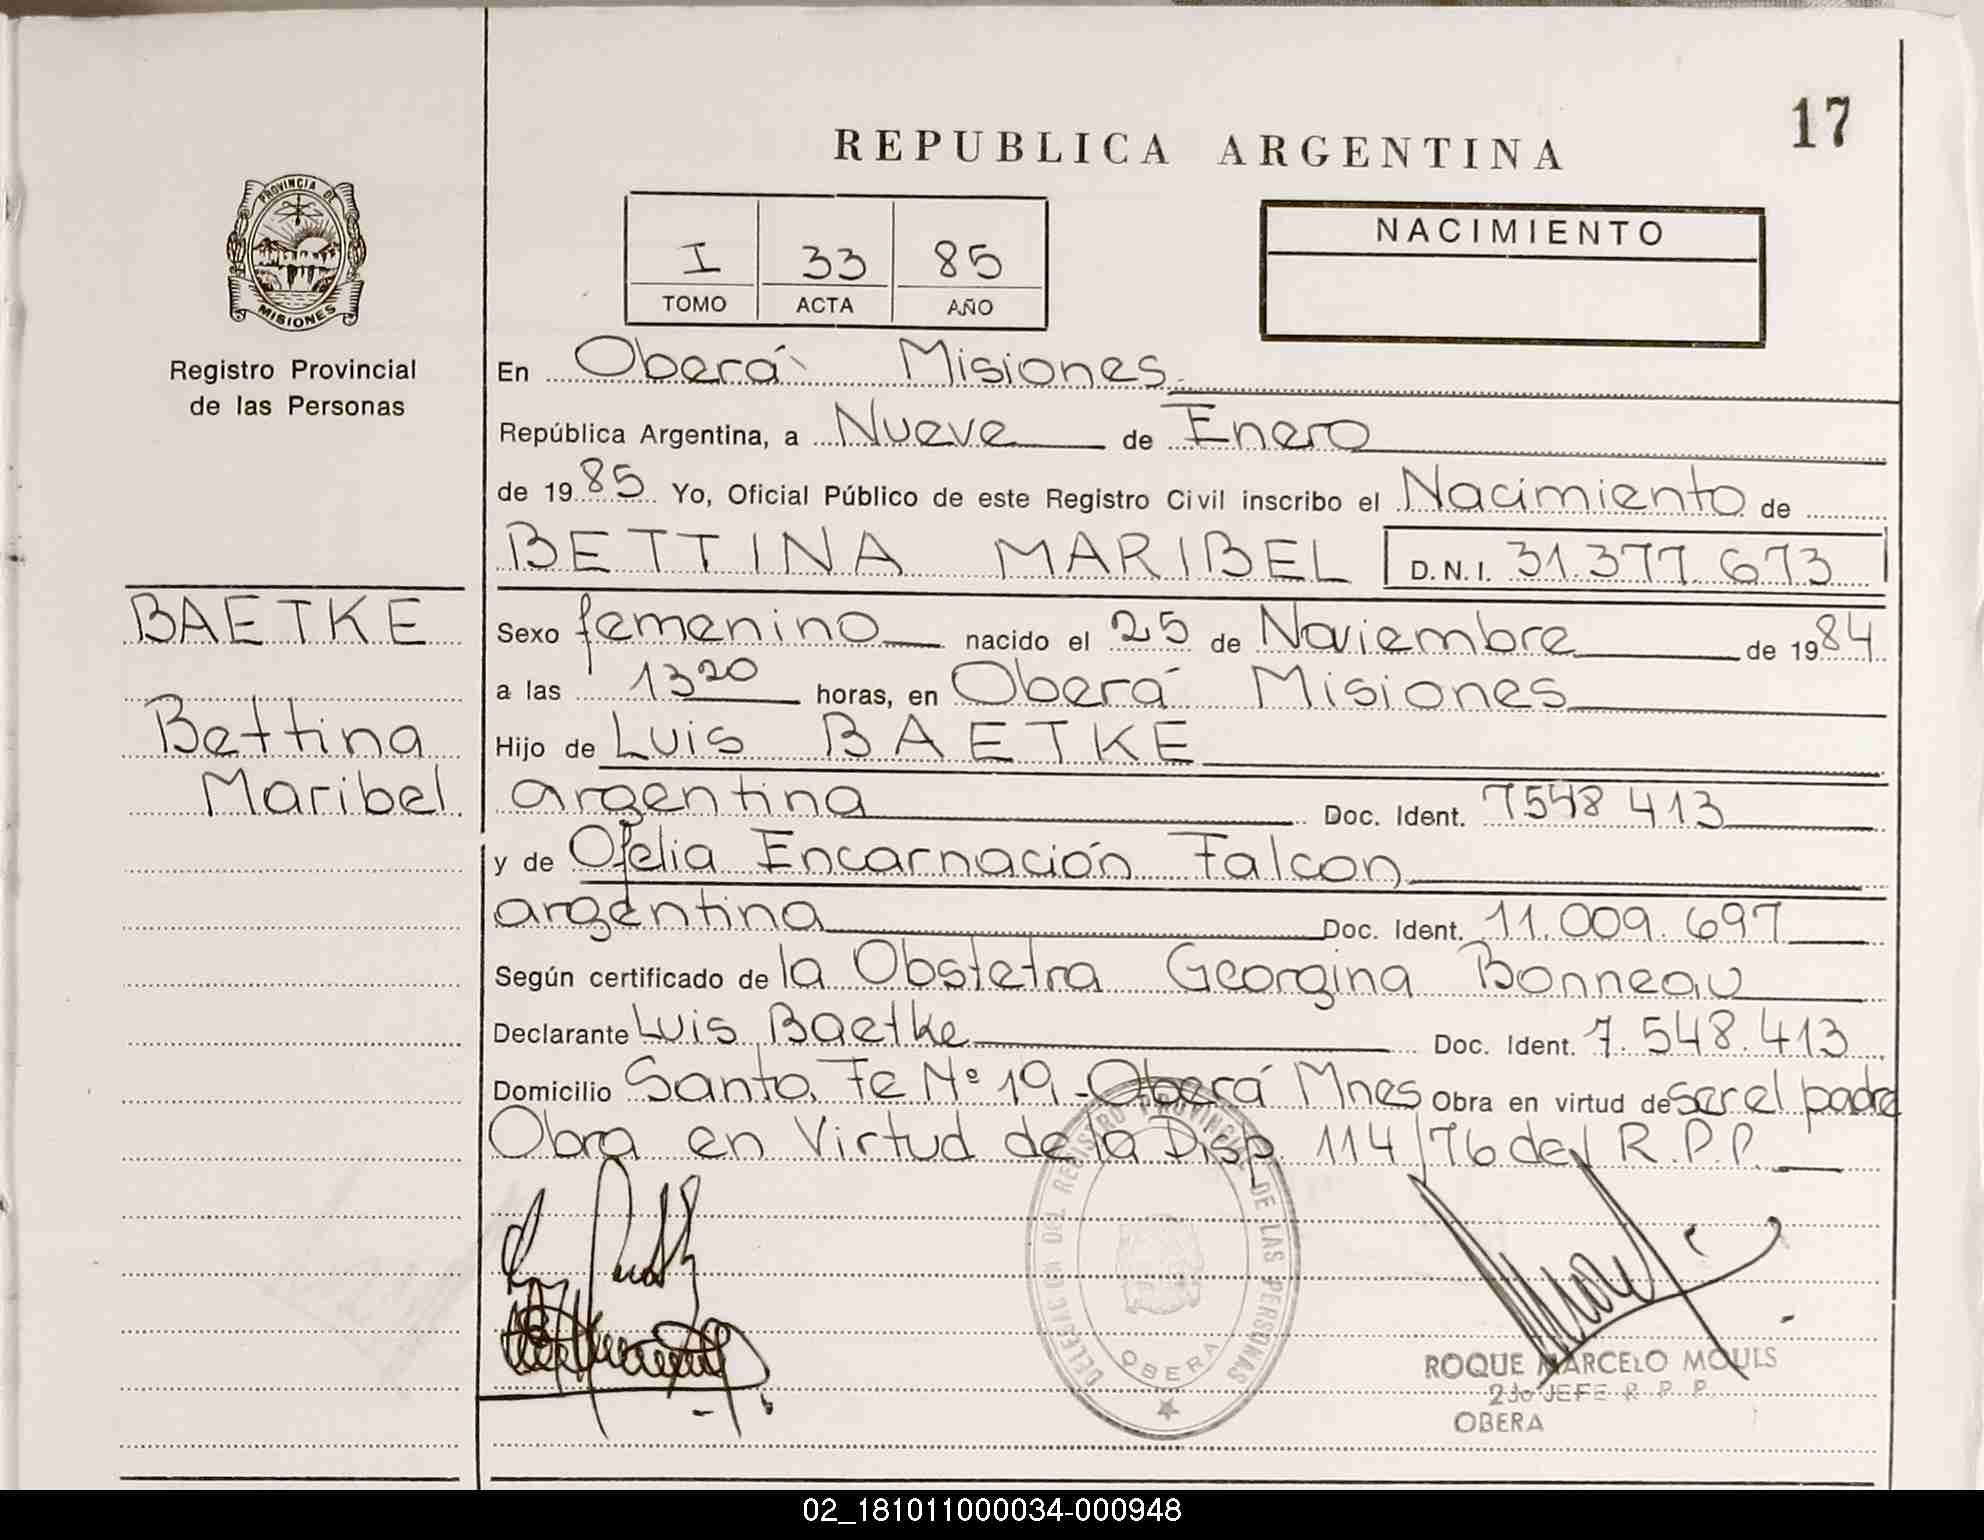 17
REPUBLICA ARGENTINA
PROVINCIA DE
MISIONES
Registro Provincial
de las Personas
I 33 85
TOMO ACTA AÑO
NACIMIENTO
En Oberá Misiones
República Argentina, a Nueve de Enero
de 1985 Yo, Oficial Público de este Registro Civil inscribo el Nacimiento de
BETTINA MARIBEL D.N.I. 31.377.673
BAETKE
Bettina
Maribel
Sexo femenino nacido el 25 de Noviembre de 1984
a las 13 20 horas, en Oberá Misiones
Hijo de Luis BAETKE
argentina Doc. Ident. 7548 413
y de Ofelia Encarnación Falcon
argentina Doc. Ident. 11.009.697
Según certificado de la Obstetra Georgina Bonneau
Declarante Luis Baetke Doc. Ident. 7.548.413
Domicilio Santa Fe Nº 19 - Oberá Mnes Obra en virtud de ser el padre
Obra en Virtud de la Disp 114/76 del R.P.P.
DELEGACION DEL REGISTRO PROVINCIAL DE LAS PERSONAS
OBERA
ROQUE MARCELO MOULS
2do JEFE R. P. P.
OBERA
02_181011000034-000948